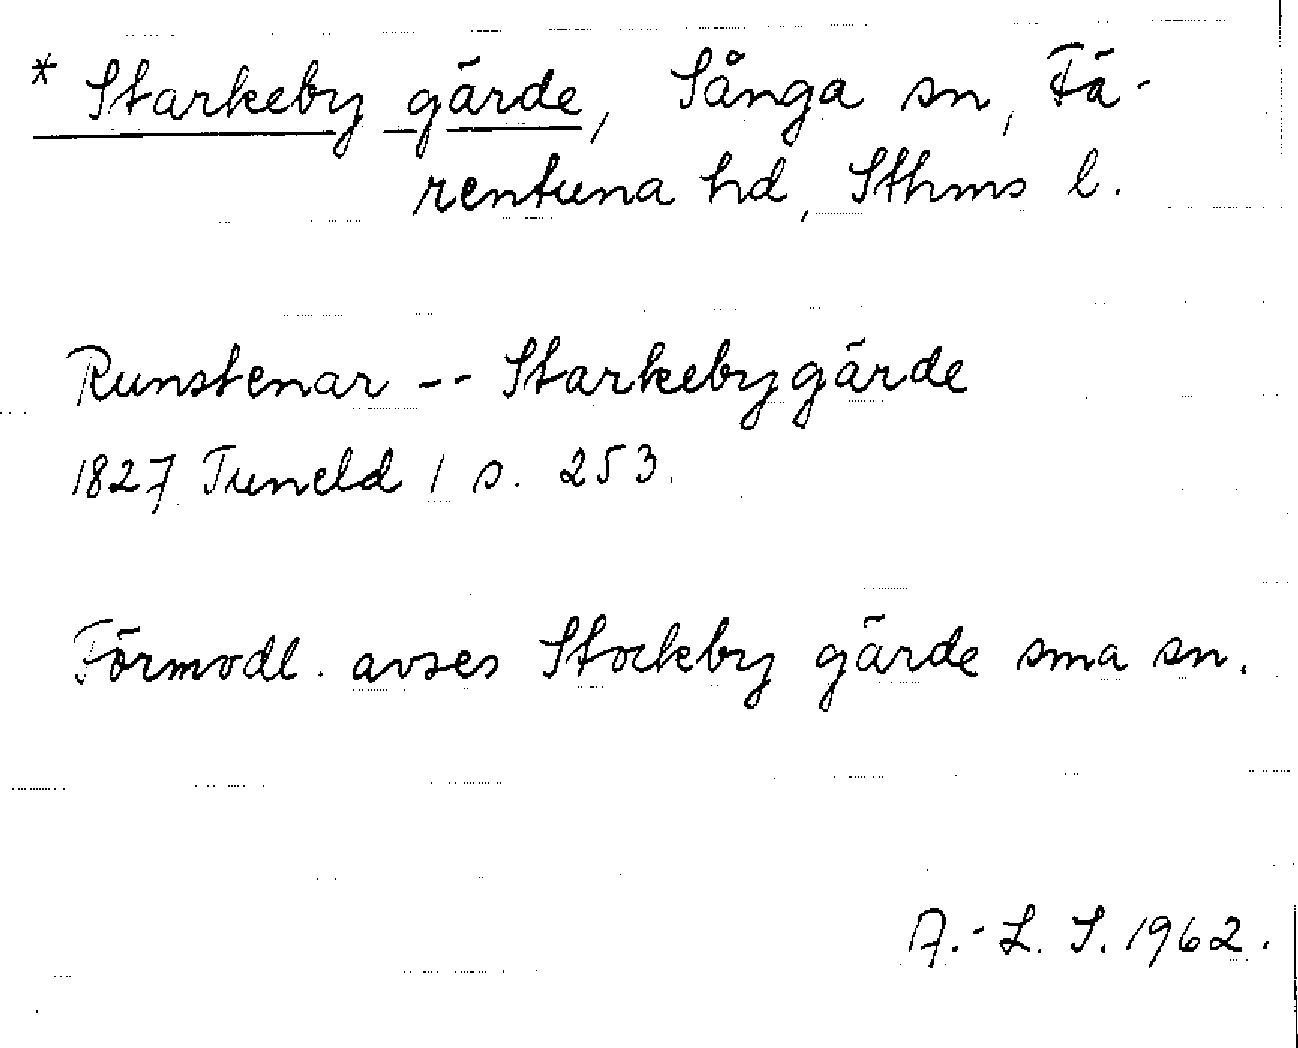 * Starkeby gärde, Sånga sn, Fä-
rentuna hd, Sthms l.
Runstenar -- Starkebygärde
1827 Tuneld 1 s. 253.
Förmodl. avses Stockby gärde sma sn.
A.-L. S. 1962.